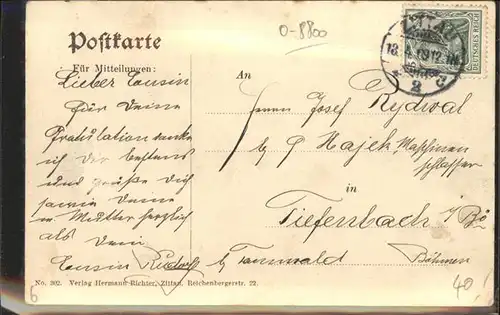 0-8800
Postkarte
Für Mitteilungen:
Lieber Cousin
für Deine
Gratulation danke
ich Dir bestens
und grüße Dich
sowie Deine
Mutter herzlich
als Dein
Cousin Rudolf
An
Herrn Josef Rydval
b/ P Hajek, Maschinen
schlosser
in
Tiefenbach i/Bö
b Tannwald
Böhmen
ZITTAU
18
2
DEUTSCHES REICH
No. 302. Verlag Hermann Richter, Zittau, Reichenbergerstr. 22.
6
40!